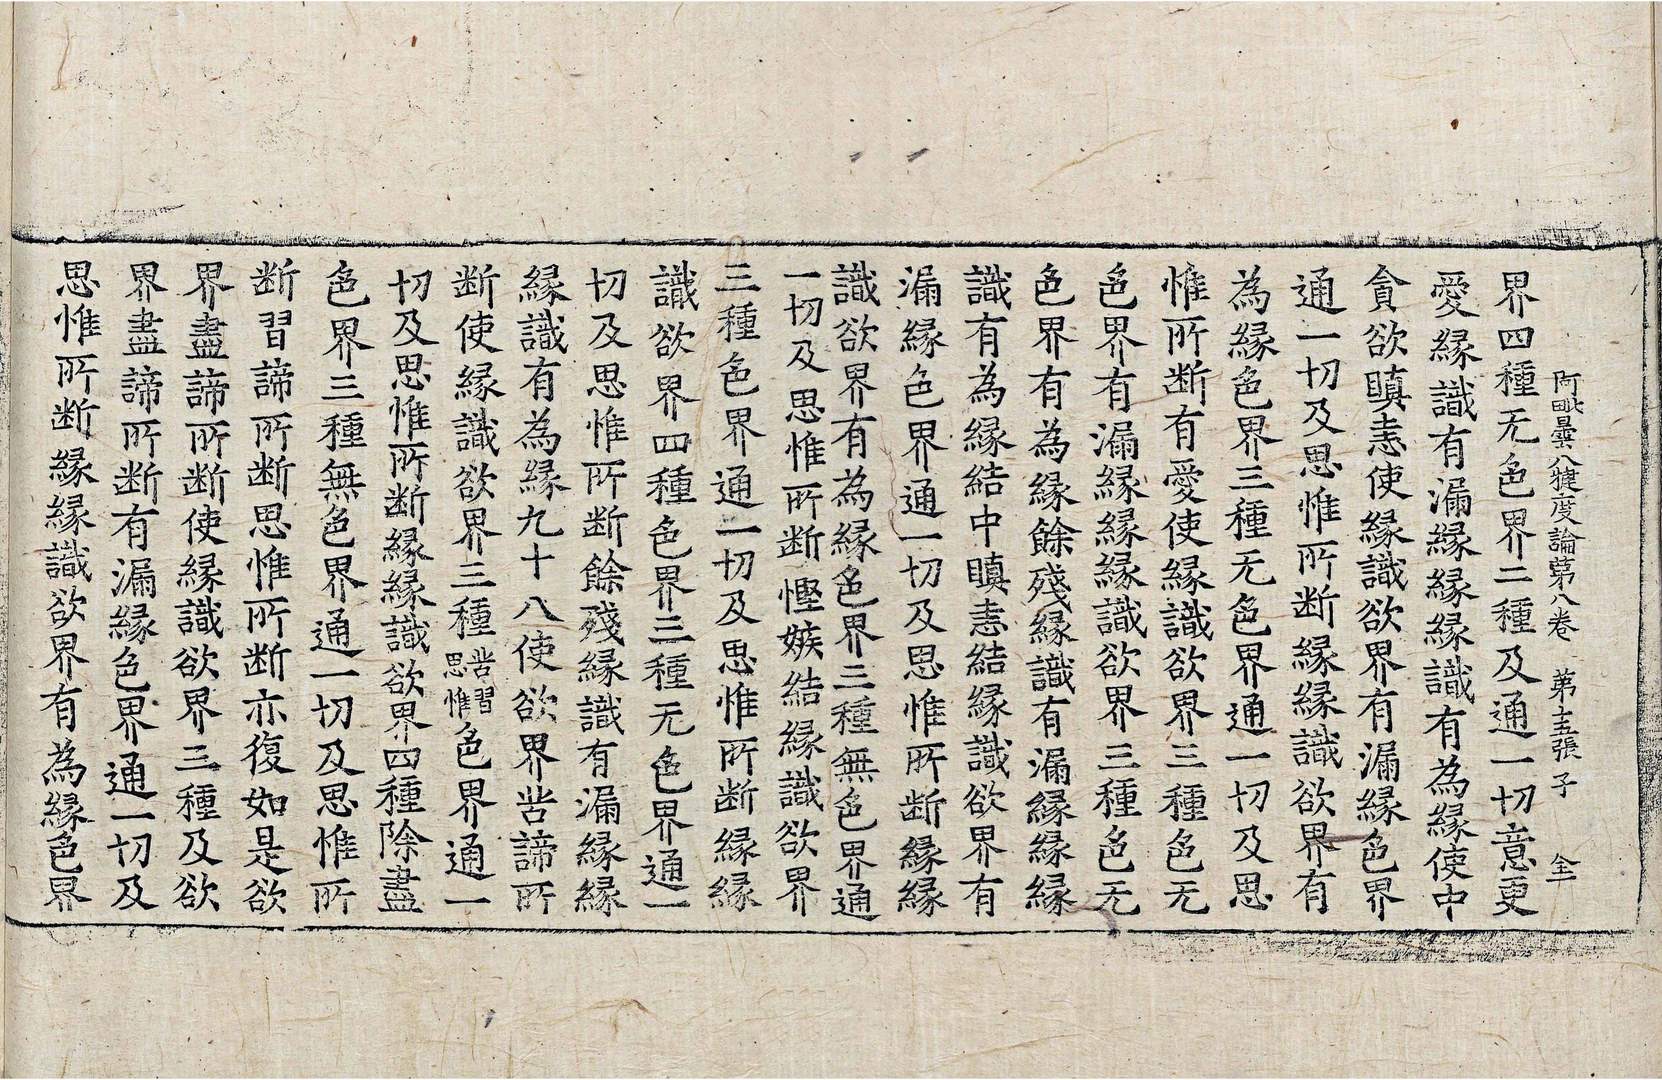 阿毗曇八犍度論第八卷 第十五張 子 全一
界四種无色界二種及通一切意更
愛緣識有漏緣緣識有為緣使中
貪欲瞋恚使緣識欲界有漏緣色界
通一切及思惟所断緣緣識欲界有
為緣色界三種无色界通一切及思
惟所断有愛使緣識欲界三種色无
色界有漏緣緣識欲界三種色无
色界有為緣餘殘緣識有漏緣緣
識有為緣結中瞋恚結緣識欲界有
漏緣色界通一切及思惟所断緣緣
識欲界有為緣色界三種無色界通
一切及思惟所断慳嫉結緣識欲界
三種色界通一切及思惟所断緣緣
識欲界四種色界三種无色界通一
切及思惟所断餘殘緣識有漏緣緣
緣識有為緣九十八使欲界苦諦所
断使緣識欲界三種苦習思惟色界通一
切及思惟所断緣緣識欲界四種除盡
色界三種無色界通一切及思惟所
断習諦所断思惟所断亦復如是欲
界盡諦所断使緣識欲界三種及欲
界盡諦所断有漏緣色界通一切及
思惟所断緣緣識欲界有為緣色界